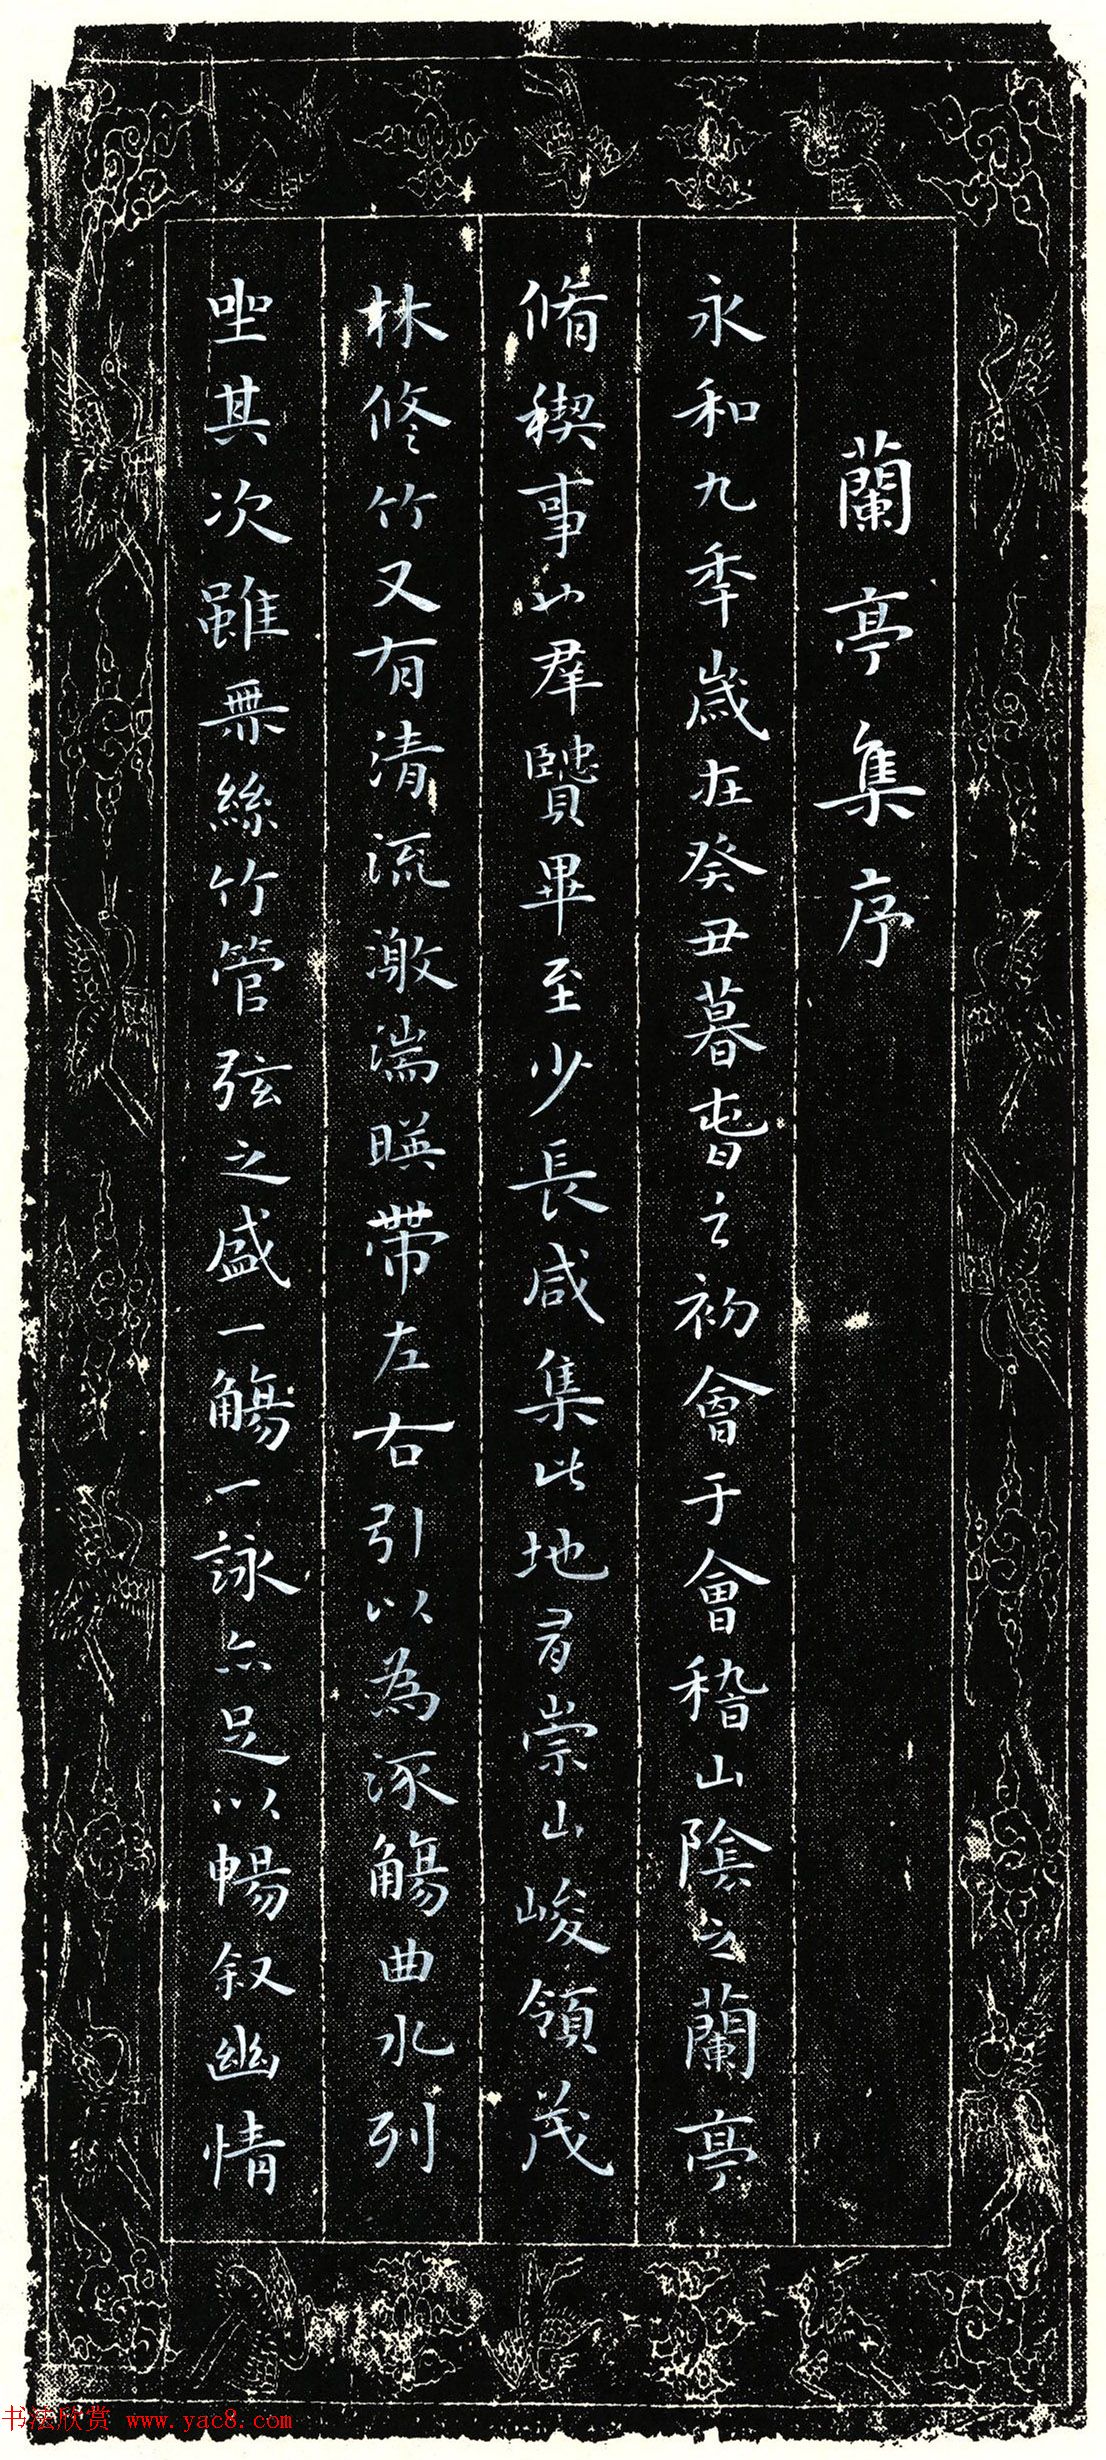 蘭亭集序
永和九秊歲在癸丑暮萅之初會于會稽山陰之蘭亭
脩稧事也羣賢畢至少長咸集此地有崇山峻領茂
林修竹又有清流激湍暎帶左右引以為流觴曲水列
坐其次雖無絲竹管弦之盛一觴一詠亦足以暢叙幽情
书法欣赏 www.yac8.com